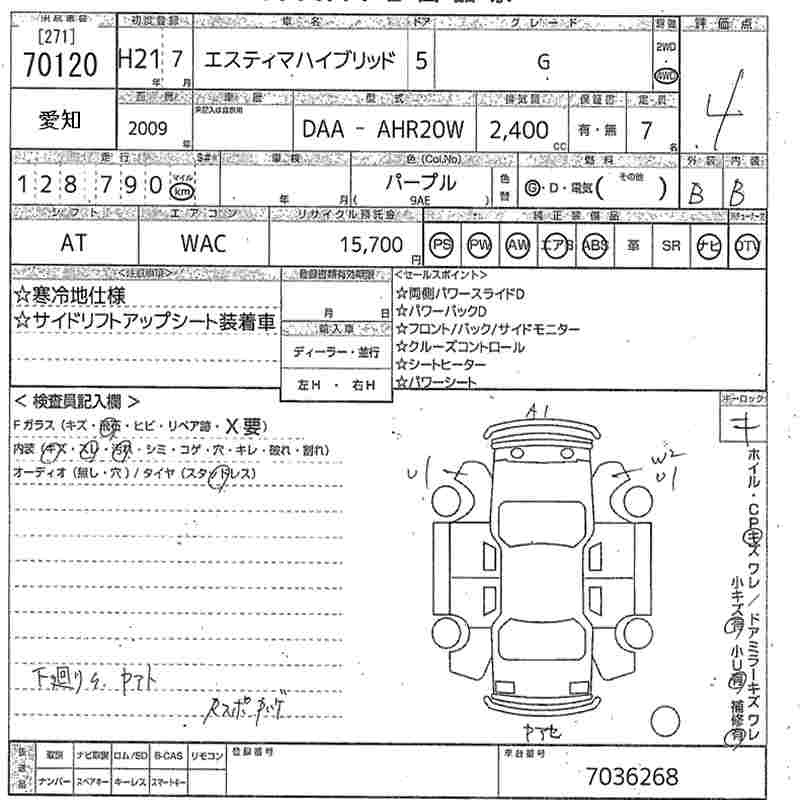 出品番号 初度登録 車名 ドア グレード 駆動 評価点
[271]
70120 H21 年 7 月 エスティマハイブリッド 5 G 2WD・4WD 4
愛知 2009 年 車歴 型式 排気量 保証書 定員
DAA - AHR20W 2,400 CC 有・無 7 名
走行 S#* 車検 色(Col,No) 燃料 外装 内装
128790 マイル km 年 月 パープル ( 9AE ) 色替 G・D・電気( その他 ) B B
シフト エアコン リサイクル預託金 純正装備品
AT WAC 15,700 円 PS PW AW エアB ABS 革 SR ナビ DTV
<注意事項> 登録書類有効期限 <セールスポイント>
☆寒冷地仕様 ☆両側パワースライドD
☆サイドリフトアップシート装着車 月 日 ☆パワーバックD
輸入車 ☆フロント/バック/サイドモニター
ディーラー・並行 ☆クルーズコントロール
☆シートヒーター
左H ・ 右H ☆パワーシート
< 検査員記入欄 > キーロック
Fガラス (キズ・飛石・ヒビ・リペア跡・X要) A1 キ
内装 (キズ・スレ・汚れ・シミ・コゲ・穴・キレ・破れ・割れ)
オーディオ (無し・穴) / タイヤ (スタッドレス) U1 W2
U1
ホイル・CPキズ ワレ / ドアミラーキズ ワレ
小キズ有 小U有 補修有
下廻り
ヤアセ
後送品 取説 ナビ取説 ロム/SD B-CAS リモコン 登録番号 車台番号
ナンバー スペアキー キーレス スマートキー 7036268